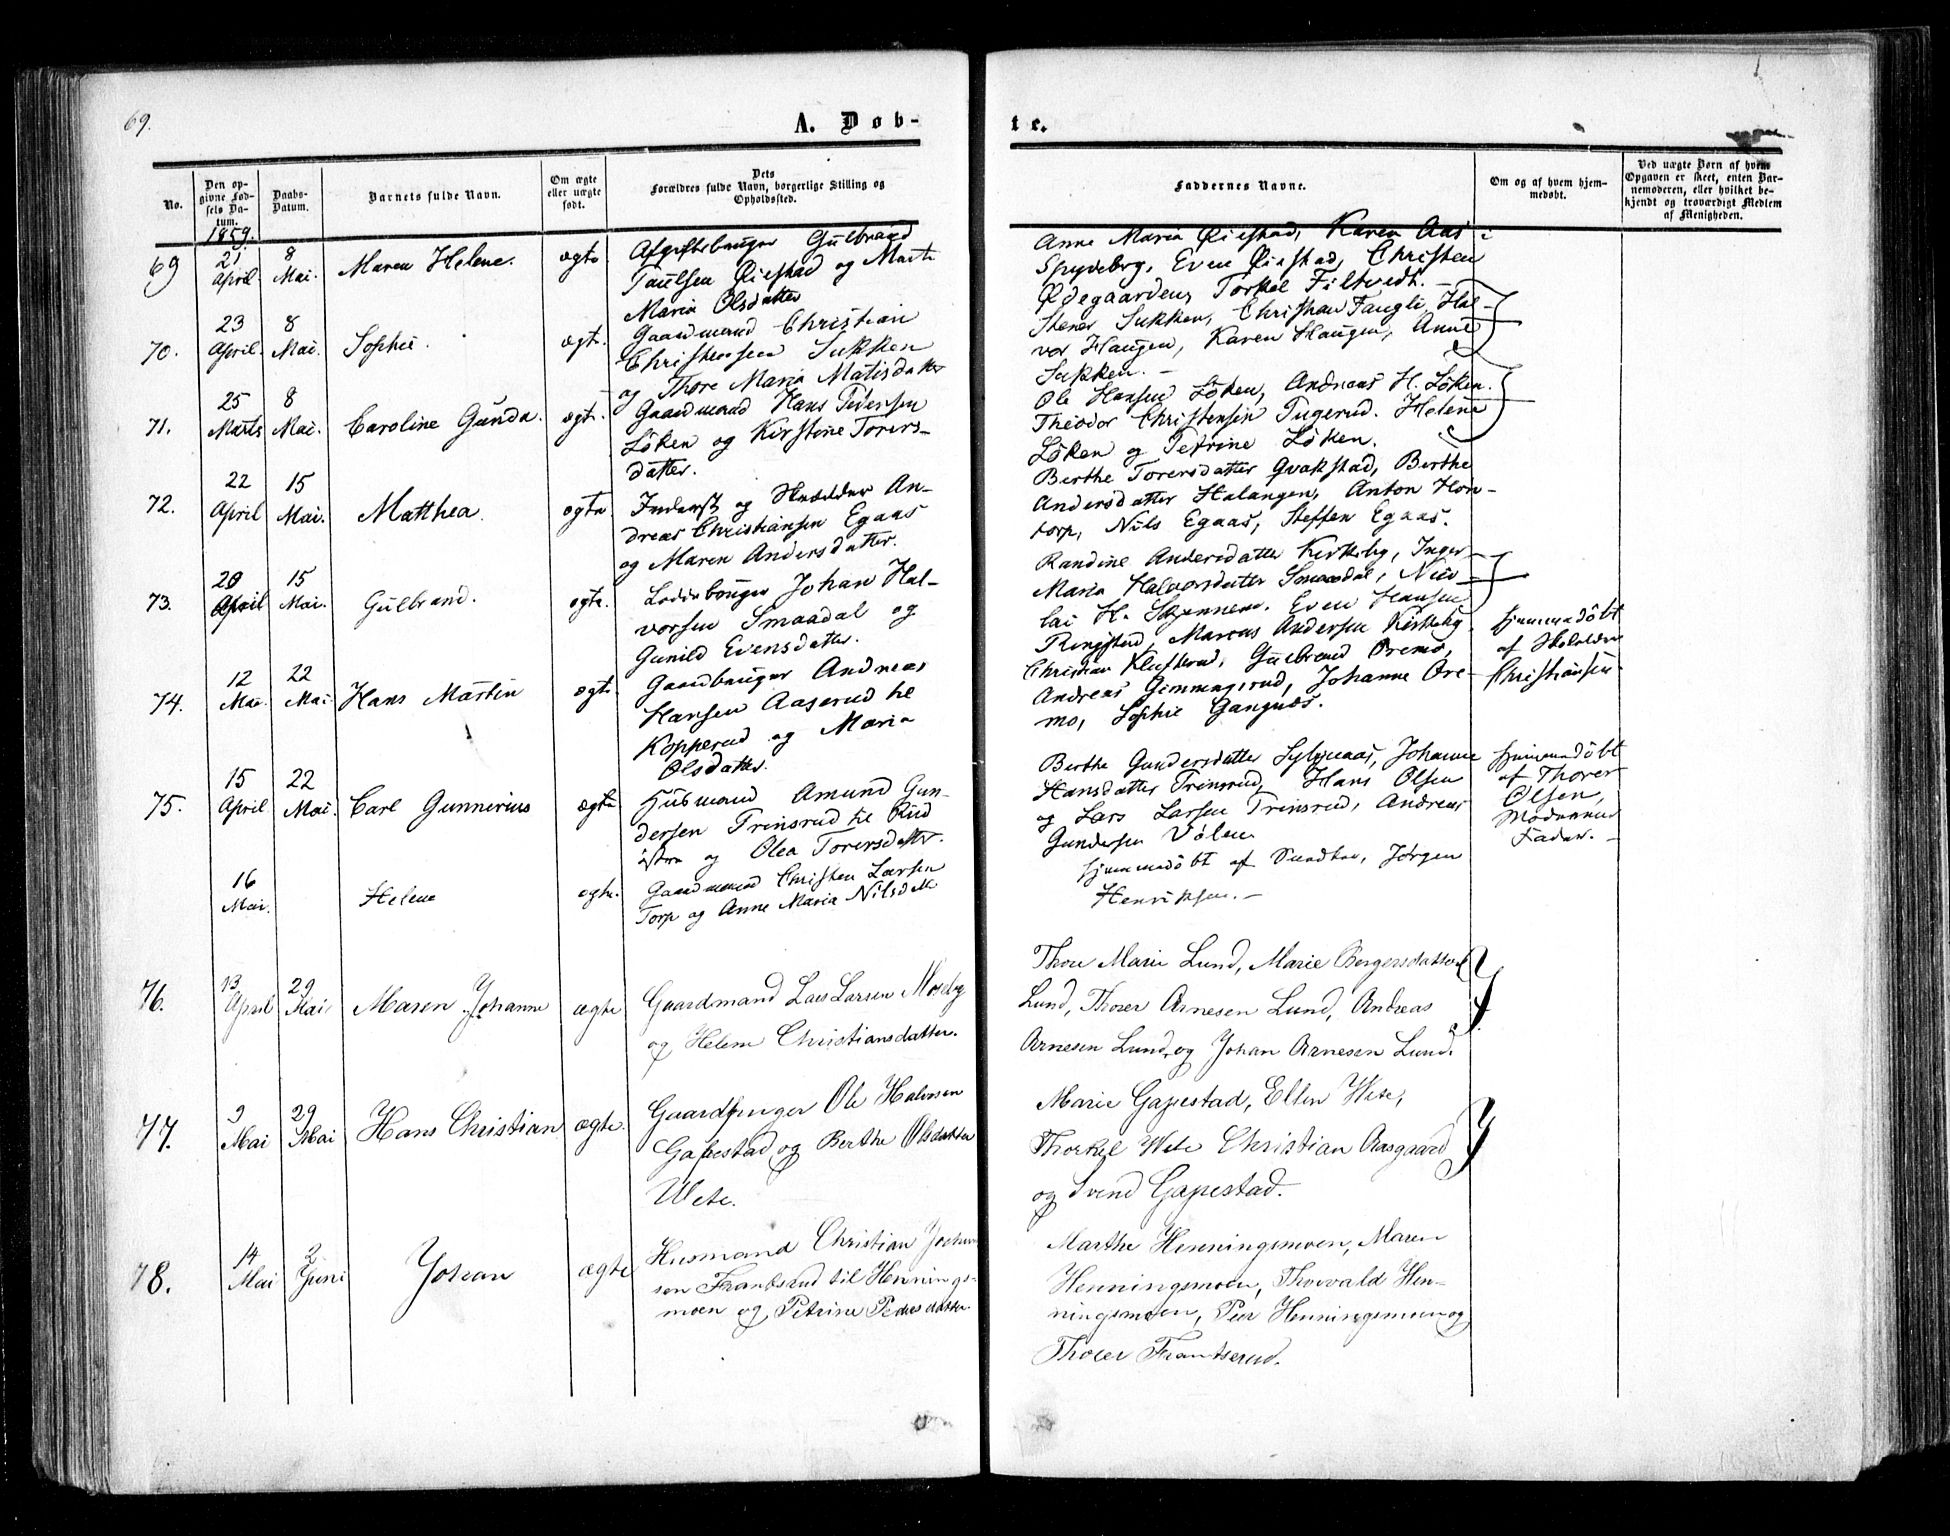 69.
A. Døb-
te.
No.
Den opgivne Fødsels Datum.
Daabs-Datum.
Barnets fulde Navn.
Om ægte eller uægte født.
Dets Forældres fulde Navn, borgerlige Stilling og Opholdssted.
Faddernes Navne.
Om og af hvem hjemmedøbt.
Ved uægte Børn af hvem Opgaven er skeet, enten Barnemoderen, eller hvilket bekjendt og troværdigt Medlem af Menigheden.
1859.
69 21 April 8 Mai. Maren Helene. ægte
Gulbrand
Paulsen Øiestad og Marte
Maria Olsdatter
Anne Maria Øiestad, Karen Aas i
Spydeberg, Even Øiestad, Christen
Ødegaarden, Torkel Filtvedt. -
70. 23 April. 8 Mai. Sophie. ægte.
Gaardmand Christian
Christensen Sukken
og Thore Maria Matisdatter
Stener Sukken, Christian Faugli, Hal-
vor Haugen, Karen Haugen, Anne
Sukken. -
71. 25 Marts 8 Mai. Caroline Gunda. ægte.
Gaardmand Hans Pedersen
Löken og Kirstine Torers-
datter.
Ole Hansen Löken, Andreas H. Löken.
Theodor Christensen Tugerud. Helene
Löken og Petrine Löken.
72. 22 April 15 Mai. Matthea. ægte
Inderst og Skrædder An-
dreas Christiansen Egaas
og Maren Andersdatter.
Berthe Torersdatter Qvakstad, Berthe
Andersdatter Halangen, Anton Hon-
torp, Nils Egaas, Steffen Egaas.
73. 20 April 15 Mai. Gulbrand. ægte.
Johan Hal-
vorsen Smaadal og
Gunild Evensdatter.
Randine Andersdatter Kirkeby, Inger
Maria Halvorsdatter Smaadal, Nico-
lai H. Even Hansen
Ringstad, Marcus Andersen Kirkeby.
74. 12 Mai. 22 Mai Hans Martin ægte
Gaardbruger Andreas
Hansen Aaserud til
Kopperud og Maria
Olsdatter.
Christian Klufterud, Gulbrand Oremo,
Andreas Gimmingsrud, Johanne Ore-
mo, Sophie Gangnæs.
hjemmedöbt
af
Christiansen
75. 15 April 22 Mai. Carl Gunnerius ægte
Husmand Amund Gun-
dersen Trinsrud til Rud
østre og Olea Torersdatter.
Berthe Gundersdatter Johanne
Hansdatter Trinsrud, Hans Olsen
og Lars Larsen Trinsrud, Andreas
Gundersen Vølen
hjemmedöbt
af Thorer
Olsen,
Moderens
Fader. -
16 Mai. Helene ægte.
Gaardmand Christen Larsen
Torp og Anne Maria Nilsdatt.
hjemmedöbt af Jørgen
Henriksen. -
76. 13 April 29 Mai Maren Johanne ægte
Gaardmand Lars Larsen Moseby
og Helene Christiansdatter.
Thore Marie Lund, Marie Børgersdatter
Lund, Thorer Arnesen Lund, Andreas
Arnesen Lund og Johan Arnesen Lund.
77. 9 Mai 29 Mai Hans Christian ægte.
Ole Halvorsen
Gapestad og Berthe Olsdatter
Wete.
Marie Gapestad, Ellen Wete,
Thorkel Wete Christian Aasgaard
og Svend Gapestad.
78. 14 Mai 2 Juni Johan ægte
Husmand Christian Jochum
sen Frantsrud til Hennings-
moen og Petrine Pedersdatter
Marthe Henningsmoen, Maren
Henningsmoen, Thorvald Hen-
ningsmoen, Peer Henningsmoen og
Thorer Frantserud.